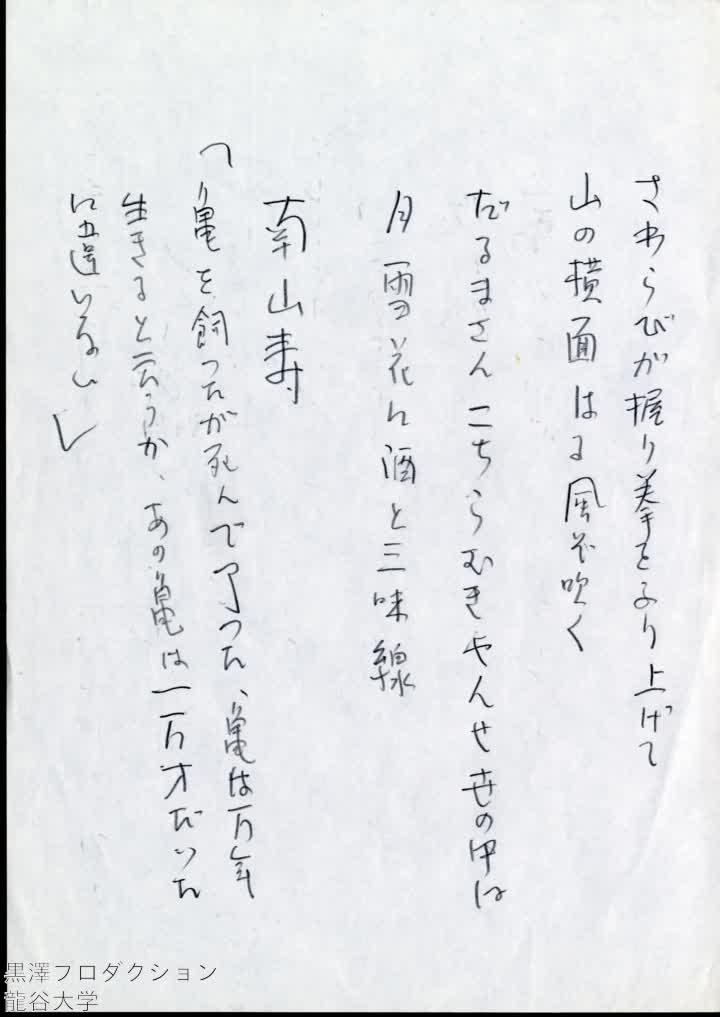 さわらびが握り拳をふり上げて
山の横面はる風ぞ吹く
だるまさんこちらむきやんせ世の中は
月雪花に酒と三味線
南山寿
「亀を飼ったが死んで了った、亀は万年
生きると云うか、あの亀は一万才だった
に違いない」
黒澤プロダクション
龍谷大学